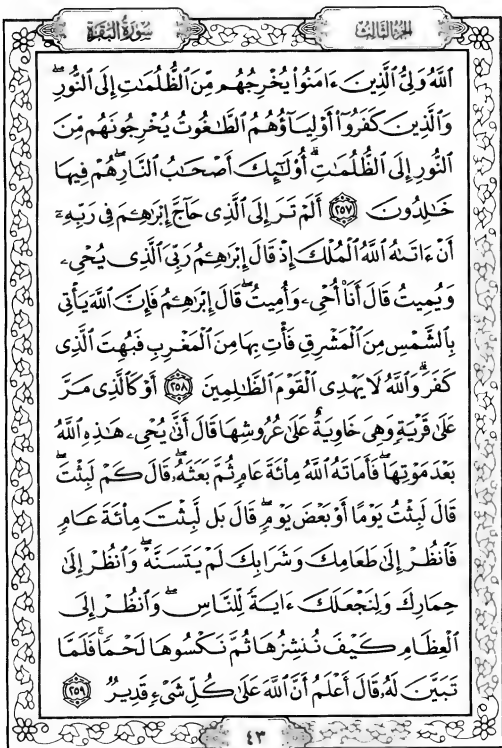 الجزء الثالث
سورة البقرة
ٱللَّهُ وَلِىُّ ٱلَّذِينَ ءَامَنُوا۟ يُخْرِجُهُم مِّنَ ٱلظُّلُمَٰتِ إِلَى ٱلنُّورِ ۖ
وَٱلَّذِينَ كَفَرُوٓا۟ أَوْلِيَآؤُهُمُ ٱلطَّٰغُوتُ يُخْرِجُونَهُم مِّنَ
ٱلنُّورِ إِلَى ٱلظُّلُمَٰتِ ۗ أُو۟لَٰٓئِكَ أَصْحَٰبُ ٱلنَّارِ ۖ هُمْ فِيهَا
خَٰلِدُونَ ٢٥٧ أَلَمْ تَرَ إِلَى ٱلَّذِى حَآجَّ إِبْرَٰهِۦمَ فِى رَبِّهِۦٓ
أَنْ ءَاتَىٰهُ ٱللَّهُ ٱلْمُلْكَ إِذْ قَالَ إِبْرَٰهِۦمُ رَبِّىَ ٱلَّذِى يُحْىِۦ
وَيُمِيتُ قَالَ أَنَا۠ أُحْىِۦ وَأُمِيتُ ۖ قَالَ إِبْرَٰهِۦمُ فَإِنَّ ٱللَّهَ يَأْتِى
بِٱلشَّمْسِ مِنَ ٱلْمَشْرِقِ فَأْتِ بِهَا مِنَ ٱلْمَغْرِبِ فَبُهِتَ ٱلَّذِى
كَفَرَ ۗ وَٱللَّهُ لَا يَهْدِى ٱلْقَوْمَ ٱلظَّٰلِمِينَ ٢٥٨ أَوْ كَٱلَّذِى مَرَّ
عَلَىٰ قَرْيَةٍ وَهِىَ خَاوِيَةٌ عَلَىٰ عُرُوشِهَا قَالَ أَنَّىٰ يُحْىِۦ هَٰذِهِ ٱللَّهُ
بَعْدَ مَوْتِهَا ۖ فَأَمَاتَهُ ٱللَّهُ مِا۟ئَةَ عَامٍ ثُمَّ بَعَثَهُۥ ۖ قَالَ كَمْ لَبِثْتَ ۖ
قَالَ لَبِثْتُ يَوْمًا أَوْ بَعْضَ يَوْمٍ ۖ قَالَ بَل لَّبِثْتَ مِا۟ئَةَ عَامٍ
فَٱنظُرْ إِلَىٰ طَعَامِكَ وَشَرَابِكَ لَمْ يَتَسَنَّهْ ۖ وَٱنظُرْ إِلَىٰ
حِمَارِكَ وَلِنَجْعَلَكَ ءَايَةً لِّلنَّاسِ ۖ وَٱنظُرْ إِلَى
ٱلْعِظَامِ كَيْفَ نُنشِزُهَا ثُمَّ نَكْسُوهَا لَحْمًا ۚ فَلَمَّا
تَبَيَّنَ لَهُۥ قَالَ أَعْلَمُ أَنَّ ٱللَّهَ عَلَىٰ كُلِّ شَىْءٍ قَدِيرٌ ٢٥٩
٤٣